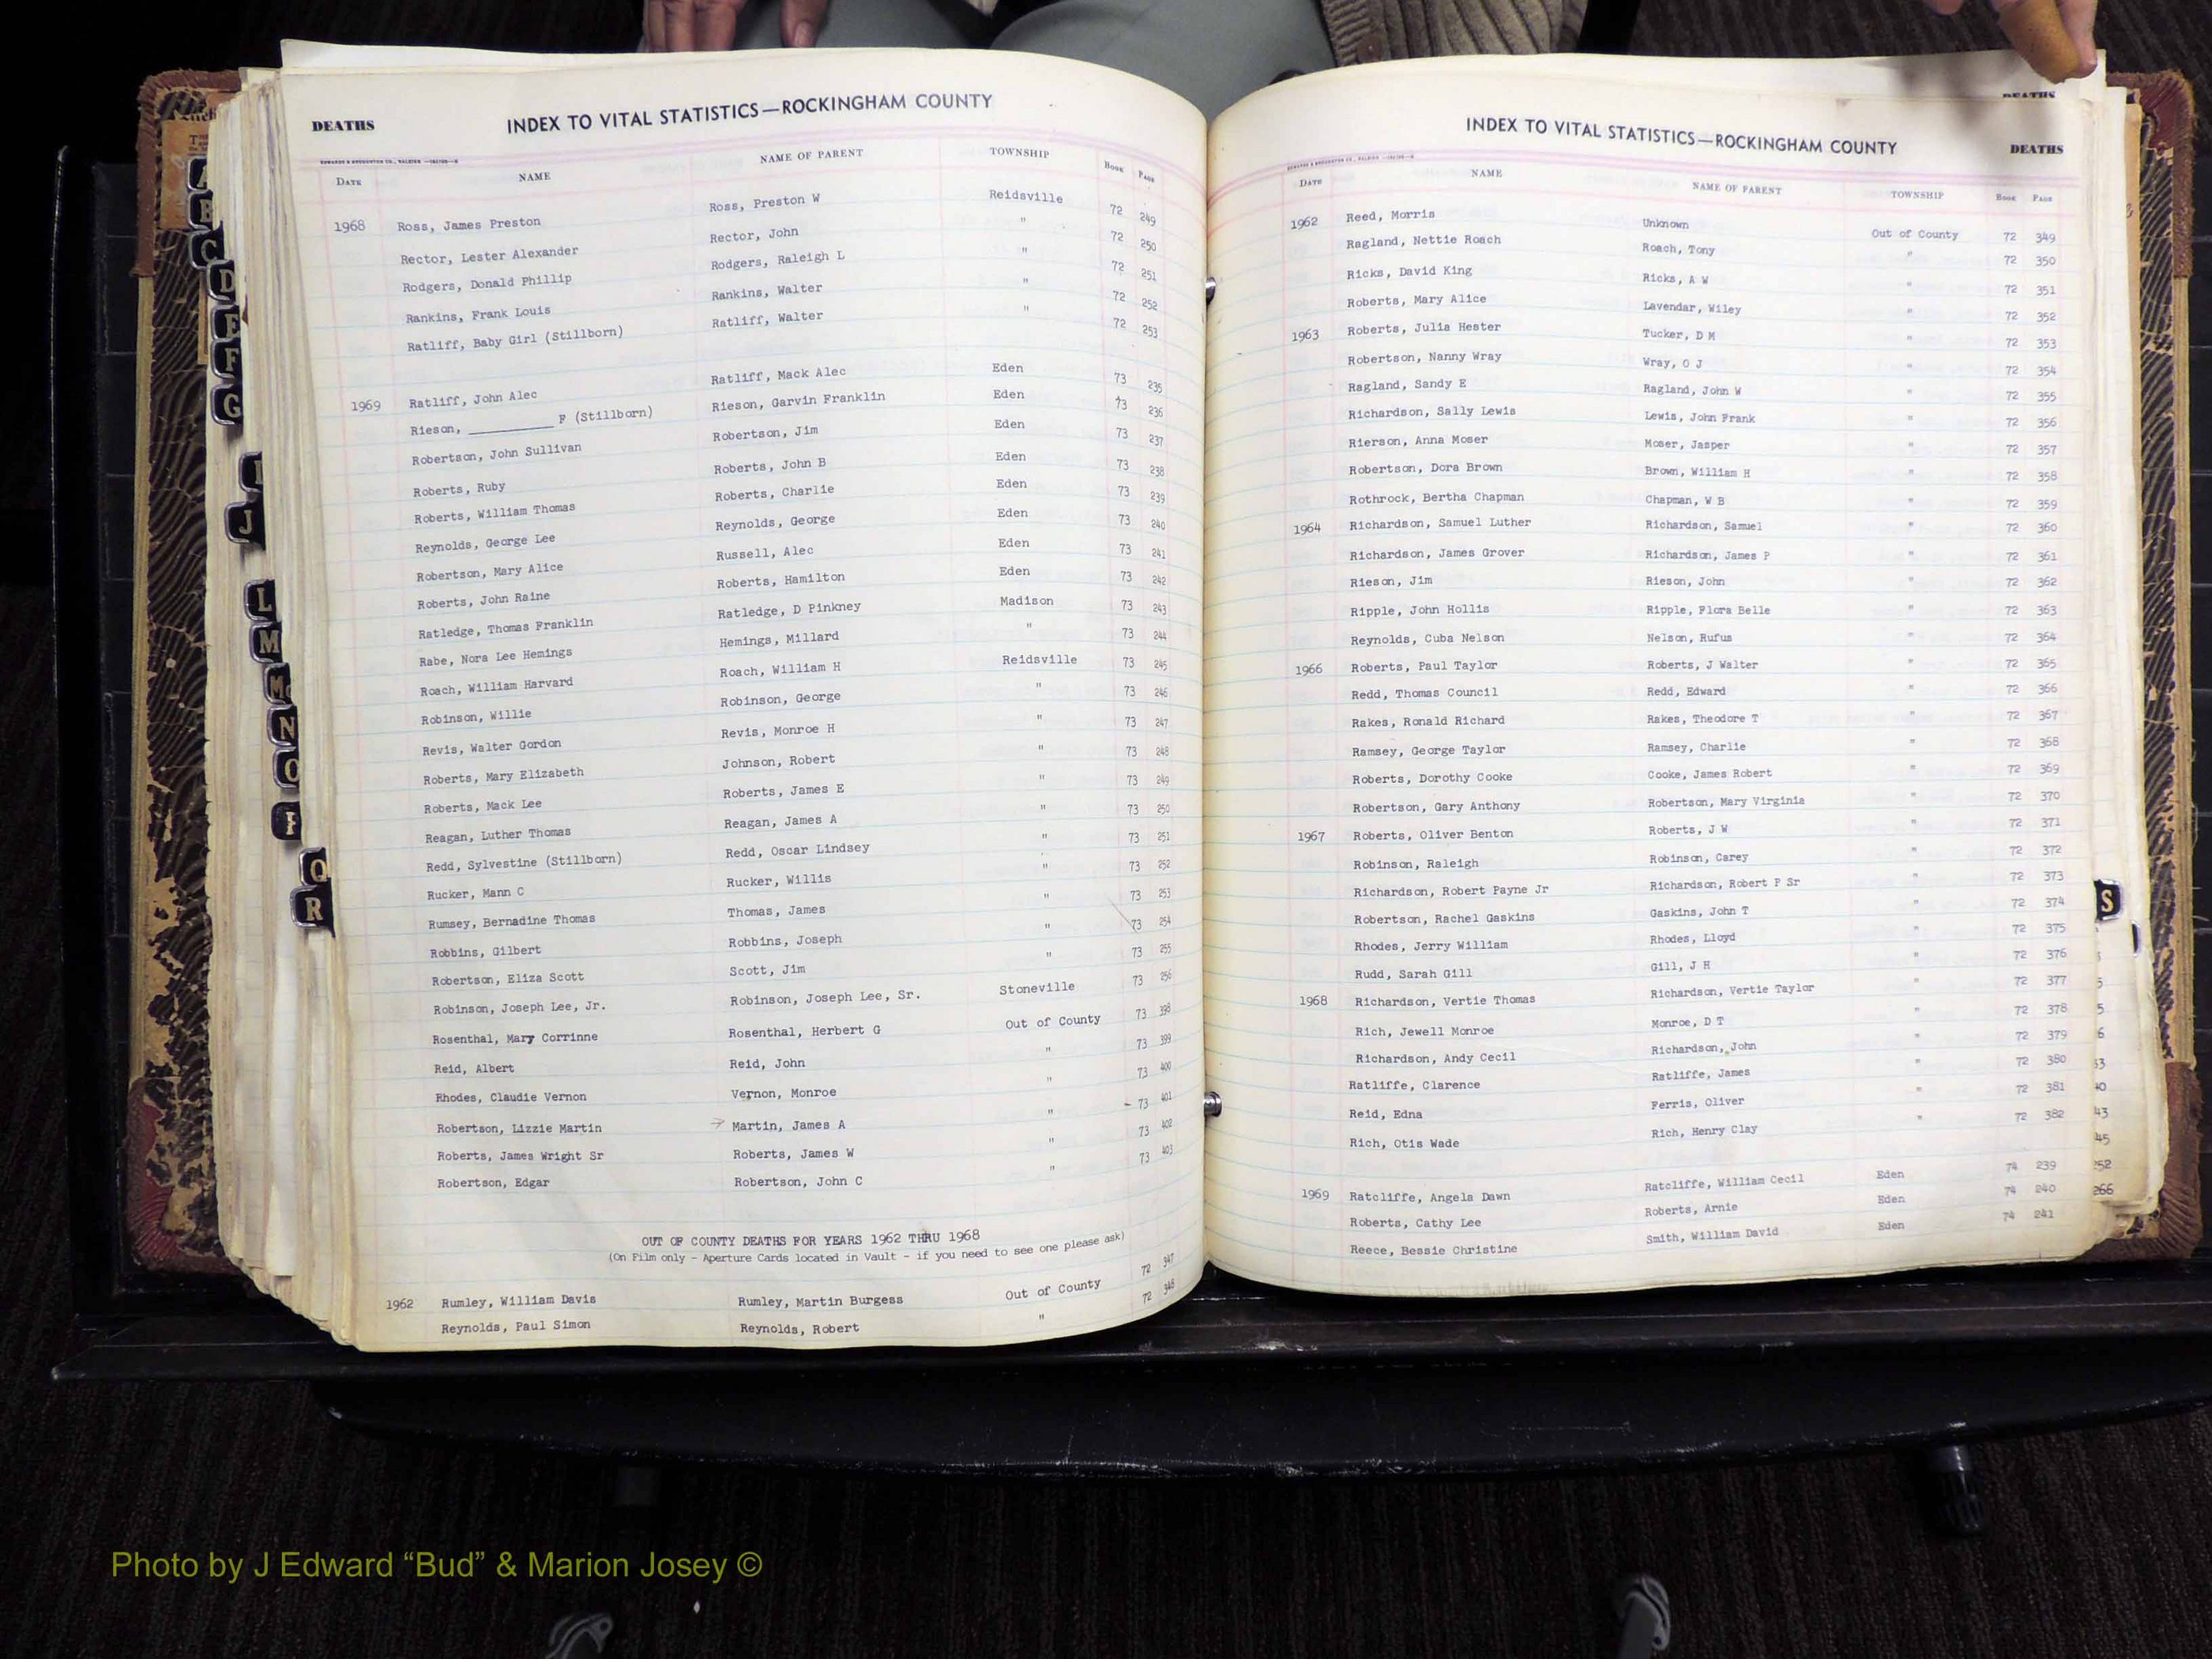 DEATHS INDEX TO VITAL STATISTICS—ROCKINGHAM COUNTY
DATE NAME NAME OF PARENT TOWNSHIP BOOK PAGE
1968 Ross, James Preston Ross, Preston W Reidsville 72 249
Rector, Lester Alexander Rector, John " 72 250
Rodgers, Donald Phillip Rodgers, Raleigh L " 72 251
Rankins, Frank Louis Rankins, Walter " 72 252
Ratliff, Baby Girl (Stillborn) Ratliff, Walter " 72 253
1969 Ratliff, John Alec Ratliff, Mack Alec Eden 73 235
Rieson, __________ F (Stillborn) Rieson, Garvin Franklin Eden 73 236
Robertson, John Sullivan Robertson, Jim Eden 73 237
Roberts, Ruby Roberts, John B Eden 73 238
Roberts, William Thomas Roberts, Charlie Eden 73 239
Reynolds, George Lee Reynolds, George Eden 73 240
Robertson, Mary Alice Russell, Alec Eden 73 241
Roberts, John Raine Roberts, Hamilton Eden 73 242
Ratledge, Thomas Franklin Ratledge, D Pinkney Madison 73 243
Rabe, Nora Lee Hemings Hemings, Millard " 73 244
Roach, William Harvard Roach, William H Reidsville 73 245
Robinson, Willie Robinson, George " 73 246
Revis, Walter Gordon Revis, Monroe H " 73 247
Roberts, Mary Elizabeth Johnson, Robert " 73 248
Roberts, Mack Lee Roberts, James E " 73 249
Reagan, Luther Thomas Reagan, James A " 73 250
Redd, Sylvestine (Stillborn) Redd, Oscar Lindsey " 73 251
Rucker, Mann C Rucker, Willis " 73 252
Rumsey, Bernadine Thomas Thomas, James " 73 253
Robbins, Gilbert Robbins, Joseph " 73 254
Robertson, Eliza Scott Scott, Jim " 73 255
Robinson, Joseph Lee, Jr. Robinson, Joseph Lee, Sr. Stoneville 73 256
Rosenthal, Mary Corrinne Rosenthal, Herbert G Out of County 73 398
Reid, Albert Reid, John " 73 399
Rhodes, Claudie Vernon Vernon, Monroe " 73 400
Robertson, Lizzie Martin Martin, James A " 73 401
Roberts, James Wright Sr Roberts, James W " 73 402
Robertson, Edgar Robertson, John C " 73 403
OUT OF COUNTY DEATHS FOR YEARS 1962 THRU 1968
(On Film only - Aperture Cards located in Vault - if you need to see one please ask)
1962 Rumley, William Davis Rumley, Martin Burgess Out of County 72 347
Reynolds, Paul Simon Reynolds, Robert " 72 348
INDEX TO VITAL STATISTICS—ROCKINGHAM COUNTY DEATHS
DATE NAME NAME OF PARENT TOWNSHIP BOOK PAGE
1962 Reed, Morris Unknown Out of County 72 349
Ragland, Nettie Roach Roach, Tony " 72 350
Ricks, David King Ricks, A W " 72 351
Roberts, Mary Alice Lavendar, Wiley " 72 352
1963 Roberts, Julia Hester Tucker, D M " 72 353
Robertson, Nanny Wray Wray, O J " 72 354
Ragland, Sandy E Ragland, John W " 72 355
Richardson, Sally Lewis Lewis, John Frank " 72 356
Rierson, Anna Moser Moser, Jasper " 72 357
Robertson, Dora Brown Brown, William H " 72 358
Rothrock, Bertha Chapman Chapman, W B " 72 359
1964 Richardson, Samuel Luther Richardson, Samuel " 72 360
Richardson, James Grover Richardson, James P " 72 361
Rieson, Jim Rieson, John " 72 362
Ripple, John Hollis Ripple, Flora Belle " 72 363
Reynolds, Cuba Nelson Nelson, Rufus " 72 364
1966 Roberts, Paul Taylor Roberts, J Walter " 72 365
Redd, Thomas Council Redd, Edward " 72 366
Rakes, Ronald Richard Rakes, Theodore T " 72 367
Ramsey, George Taylor Ramsey, Charlie " 72 368
Roberts, Dorothy Cooke Cooke, James Robert " 72 369
Robertson, Gary Anthony Robertson, Mary Virginia " 72 370
1967 Roberts, Oliver Benton Roberts, J W " 72 371
Robinson, Raleigh Robinson, Carey " 72 372
Richardson, Robert Payne Jr Richardson, Robert P Sr " 72 373
Robertson, Rachel Gaskins Gaskins, John T " 72 374
Rhodes, Jerry William Rhodes, Lloyd " 72 375
Rudd, Sarah Gill Gill, J H " 72 376
1968 Richardson, Vertie Thomas Richardson, Vertie Taylor " 72 377
Rich, Jewell Monroe Monroe, D T " 72 378
Richardson, Andy Cecil Richardson, John " 72 379
Ratliffe, Clarence Ratliffe, James " 72 380
Reid, Edna Ferris, Oliver " 72 381
Rich, Otis Wade Rich, Henry Clay " 72 382
1969 Ratcliffe, Angela Dawn Ratcliffe, William Cecil Eden 74 239
Roberts, Cathy Lee Roberts, Arnie Eden 74 240
Reece, Bessie Christine Smith, William David Eden 74 241
A
B
C
D
E
F
G
I
J
L
M
Mc
N
O
P
Q
R
S
Photo by J Edward “Bud” & Marion Josey ©